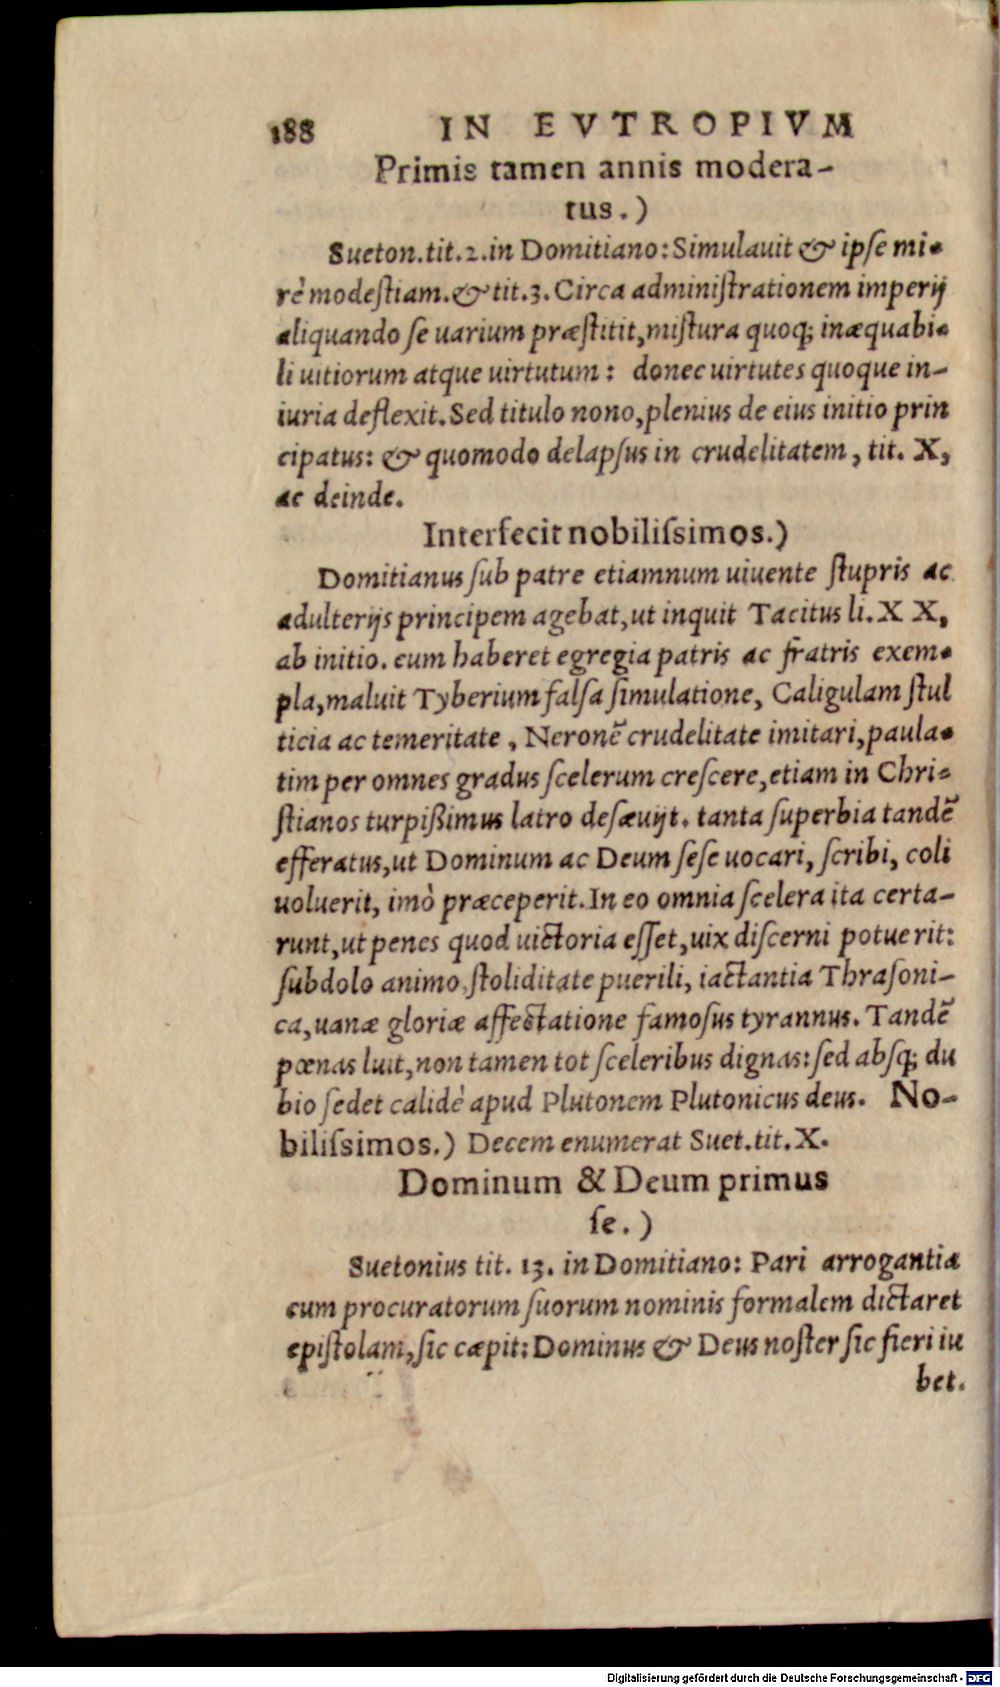 188 IN EVTROPIVM
Primis tamen annis modera-
tus.)
Sueton.tit.2.in Domitiano: Simulauit & ipſe mi-
rè modeſtiam. & tit.3. Circa adminiſtrationem imperij
aliquando ſe uarium præſtitit, miſtura quoq; inæquabi-
li uitiorum atque uirtutum: donec uirtutes quoque in-
iuria deflexit. Sed titulo nono, plenius de eius initio prin
cipatus: & quomodo delapſus in crudelitatem, tit. X,
ac deinde.
Interfecit nobiliſsimos.)
Domitianus ſub patre etiamnum uiuente ſtupris ac
adulterijs principem agebat, ut inquit Tacitus li. X X,
ab initio. cum haberet egregia patris ac fratris exem-
pla, maluit Tyberium falſa ſimulatione, Caligulam ſtul
ticia ac temeritate, Neronẽ crudelitate imitari, paula-
tim per omnes gradus ſcelerum creſcere, etiam in Chri-
ſtianos turpißimus latro deſæuijt. tanta ſuperbia tandẽ
efferatus, ut Dominum ac Deum ſeſe uocari, ſcribi, coli
uoluerit, imò præceperit. In eo omnia ſcelera ita certa-
runt, ut penes quod uictoria eſſet, uix diſcerni potuerit:
ſubdolo animo, ſtoliditate puerili, iactantia Thraſoni-
ca, uanæ gloriæ affectatione famoſus tyrannus. Tandẽ
pœnas luit, non tamen tot ſceleribus dignas: ſed abſq; du
bio ſedet calidè apud Plutonem Plutonicus deus. No-
biliſsimos.) Decem enumerat Suet.tit.X.
Dominum & Deum primus
ſe.)
Suetonius tit. 13. in Domitiano: Pari arrogantia
cum procuratorum ſuorum nominis formalem dictaret
epiſtolam, ſic cæpit: Dominus & Deus noſter ſic fieri iu
bet.
Digitalisierung gefördert durch die Deutsche Forschungsgemeinschaft - DFG